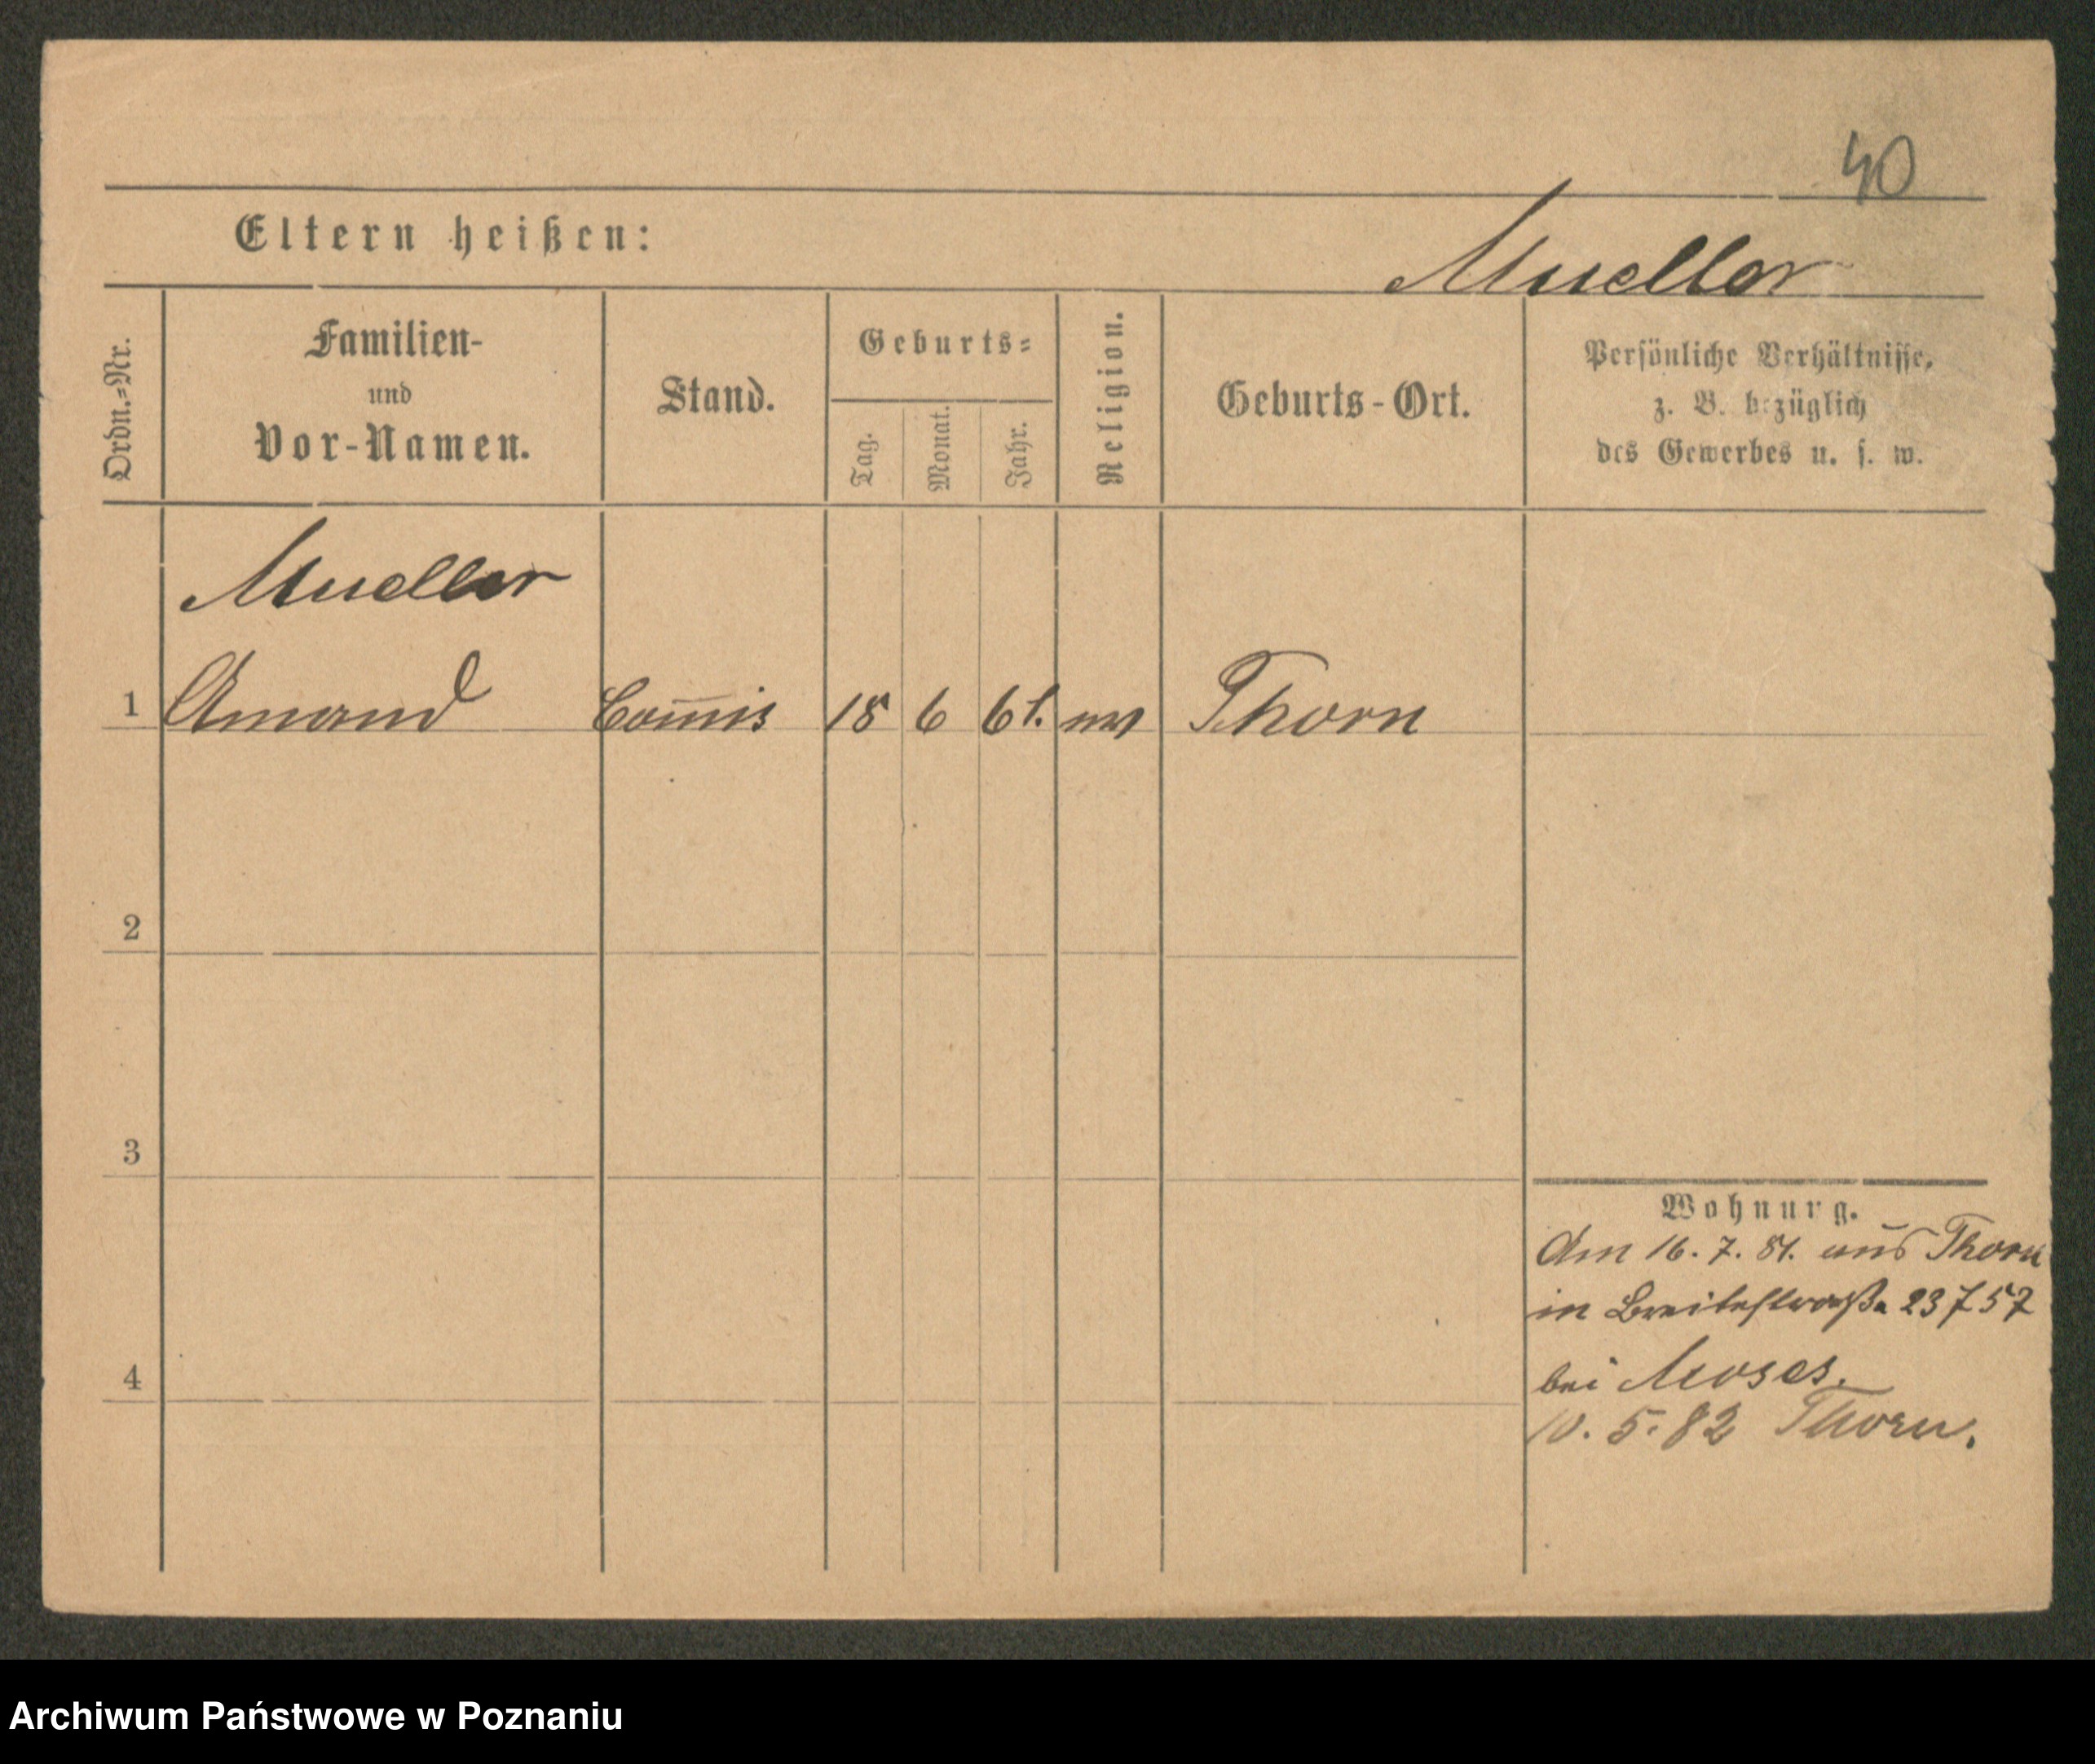 40
Eltern heißen:
Mueller
Ordn.=Nr.
Familien-
und
Vor-Namen.
Stand.
Geburts=
Tag.
Monat.
Jahr.
Religion.
Geburts-Ort.
Persönliche Verhältnisse,
z. B. bezüglich
des Gewerbes u. s. w.
Mueller
1 Amand Com̅is 18 6 61. Thorn
2
3
4
Wohnung.
Am 16. 7. 81. aus Thorn
in Breitestraße 23757
bei Moses.
10. 5. 82 Thorn.
Archiwum Państwowe w Poznaniu